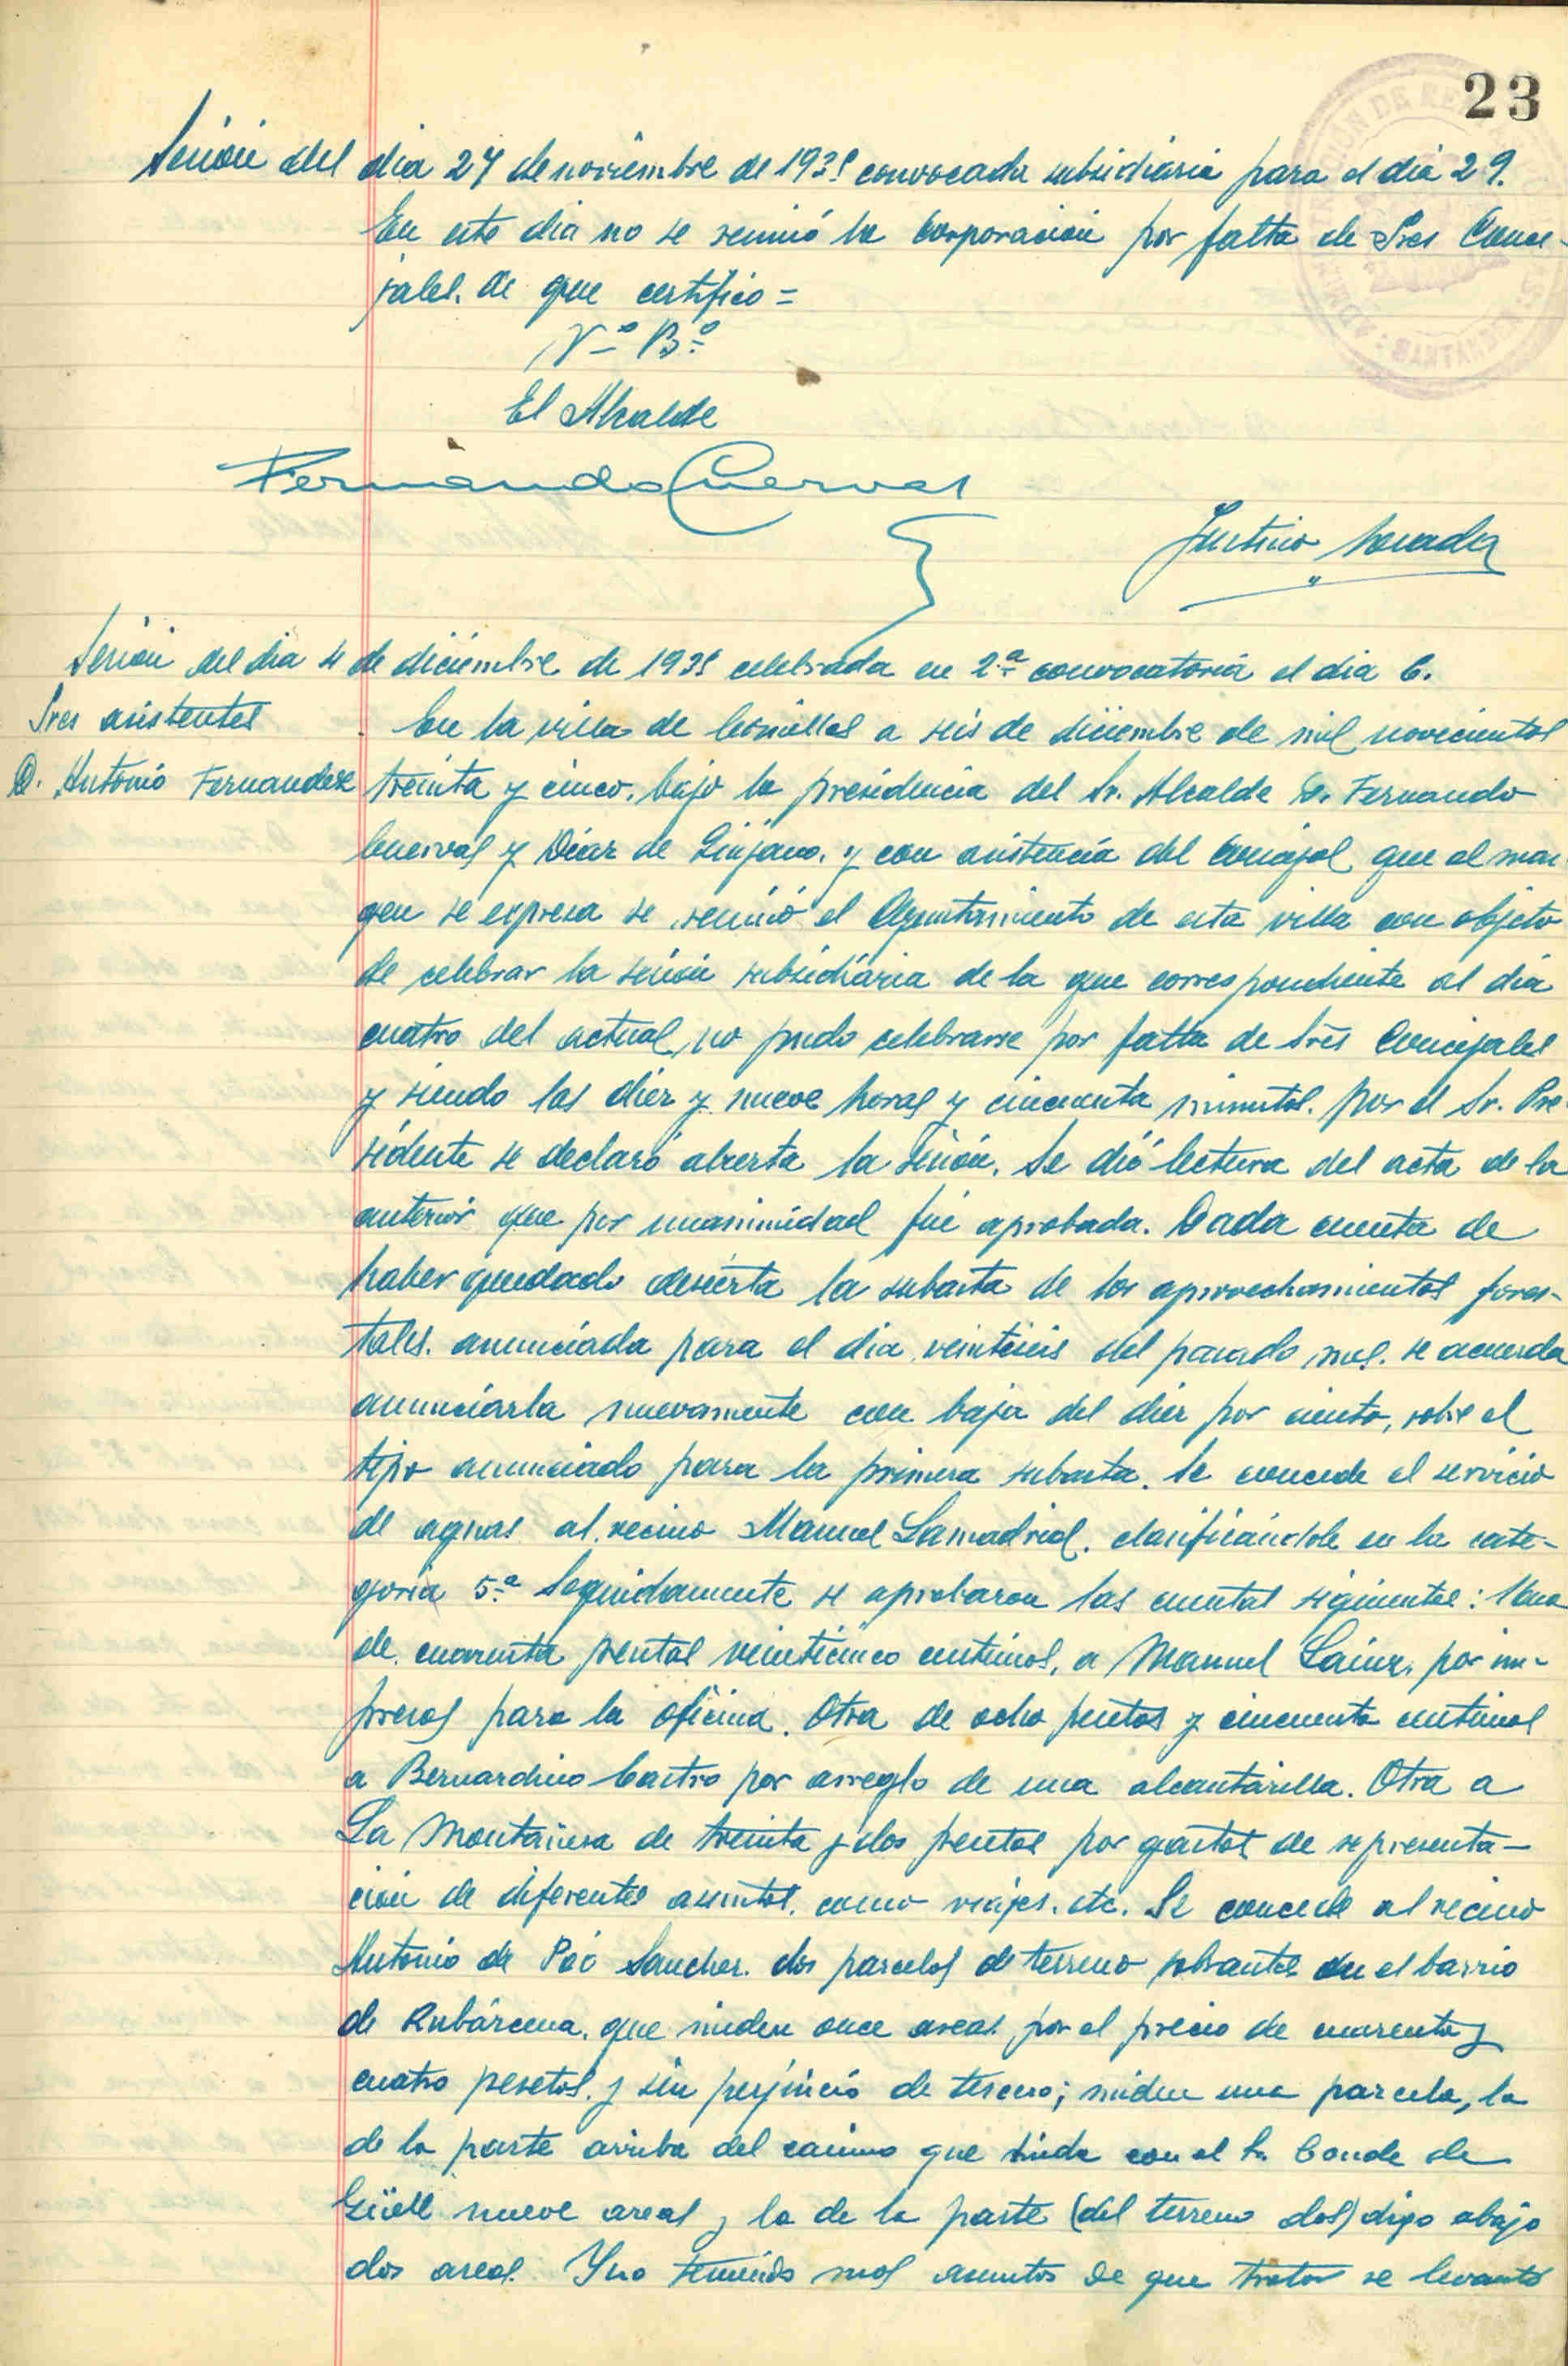 23
ADMINISTRACION DE RENTAS
SANTANDER
Sesión del dia 27 de noviembre de 1935 convocada subsidiaria para el dia 29.
En este dia no se reunió la Corporación por falta de Sres Conce-
jales. De que certifico =
Vº Bº
El Alcalde
Fernando Cuervas
Justino
Sesión del dia 4 de diciembre de 1935 celebrada en 2ª convocatoria el dia 6.
Sres asistentes
D. Antonio Fernandez
En la villa de Comillas a seis de diciembre de mil novecientos
treinta y cinco, bajo la presidencia del Sr. Alcalde D. Fernando
Cuervas y Diaz de Quijano, y con asistencia del Concejal que al mar
gen se expresa se reunió el Ayuntamiento de esta villa con objeto
de celebrar la sesión subsidiaria de la que correspondiente al dia
cuatro del actual, no pudo celebrarse por falta de Sres Concejales
y siendo las diez y nueve horas y cincuenta minutos, por el Sr. Pre
sidente se declaró abierta la sesión. Se dió lectura del acta de la
anterior que por unanimidad fué aprobada. Dada cuenta de
haber quedado desierta la subasta de los aprovechamientos fores-
tales, anunciada para el dia veintiseis del pasado mes, se acuerda
anunciarla nuevamente con baja del diez por ciento, sobre el
tipo anunciado para la primera subasta. Se concede el servicio
de aguas al vecino Manuel Lamadrid, clasificándole en la cate-
goria 5ª Seguidamente se aprobaron las cuentas siguientes: Una
de cuarenta pesetas veinticinco centimos, a Manuel Lainz, por im-
presos para la oficina. Otra de ocho pesetas y cincuenta centimos
a Bernardino Castro por arreglo de una alcantarilla. Otra a
La Montañesa de treinta y dos pesetas por gastos de representa-
ción de diferentes asuntos, como viajes, etc. Se concede al vecino
Antonio de Pió Sanchez, dos parcelas de terreno sobrantes en el barrio
de Rubárcena, que miden once areas por el precio de cuarenta y
cuatro pesetas, y sin perjuicio de tercero; miden una parcela, la
de la parte arriba del camino que linda con el Sr. Conde de
Güell nueve areas y la de la parte (del terreno dos) digo abajo
dos areas. Y no teniendo mas asuntos de que tratar se levantó